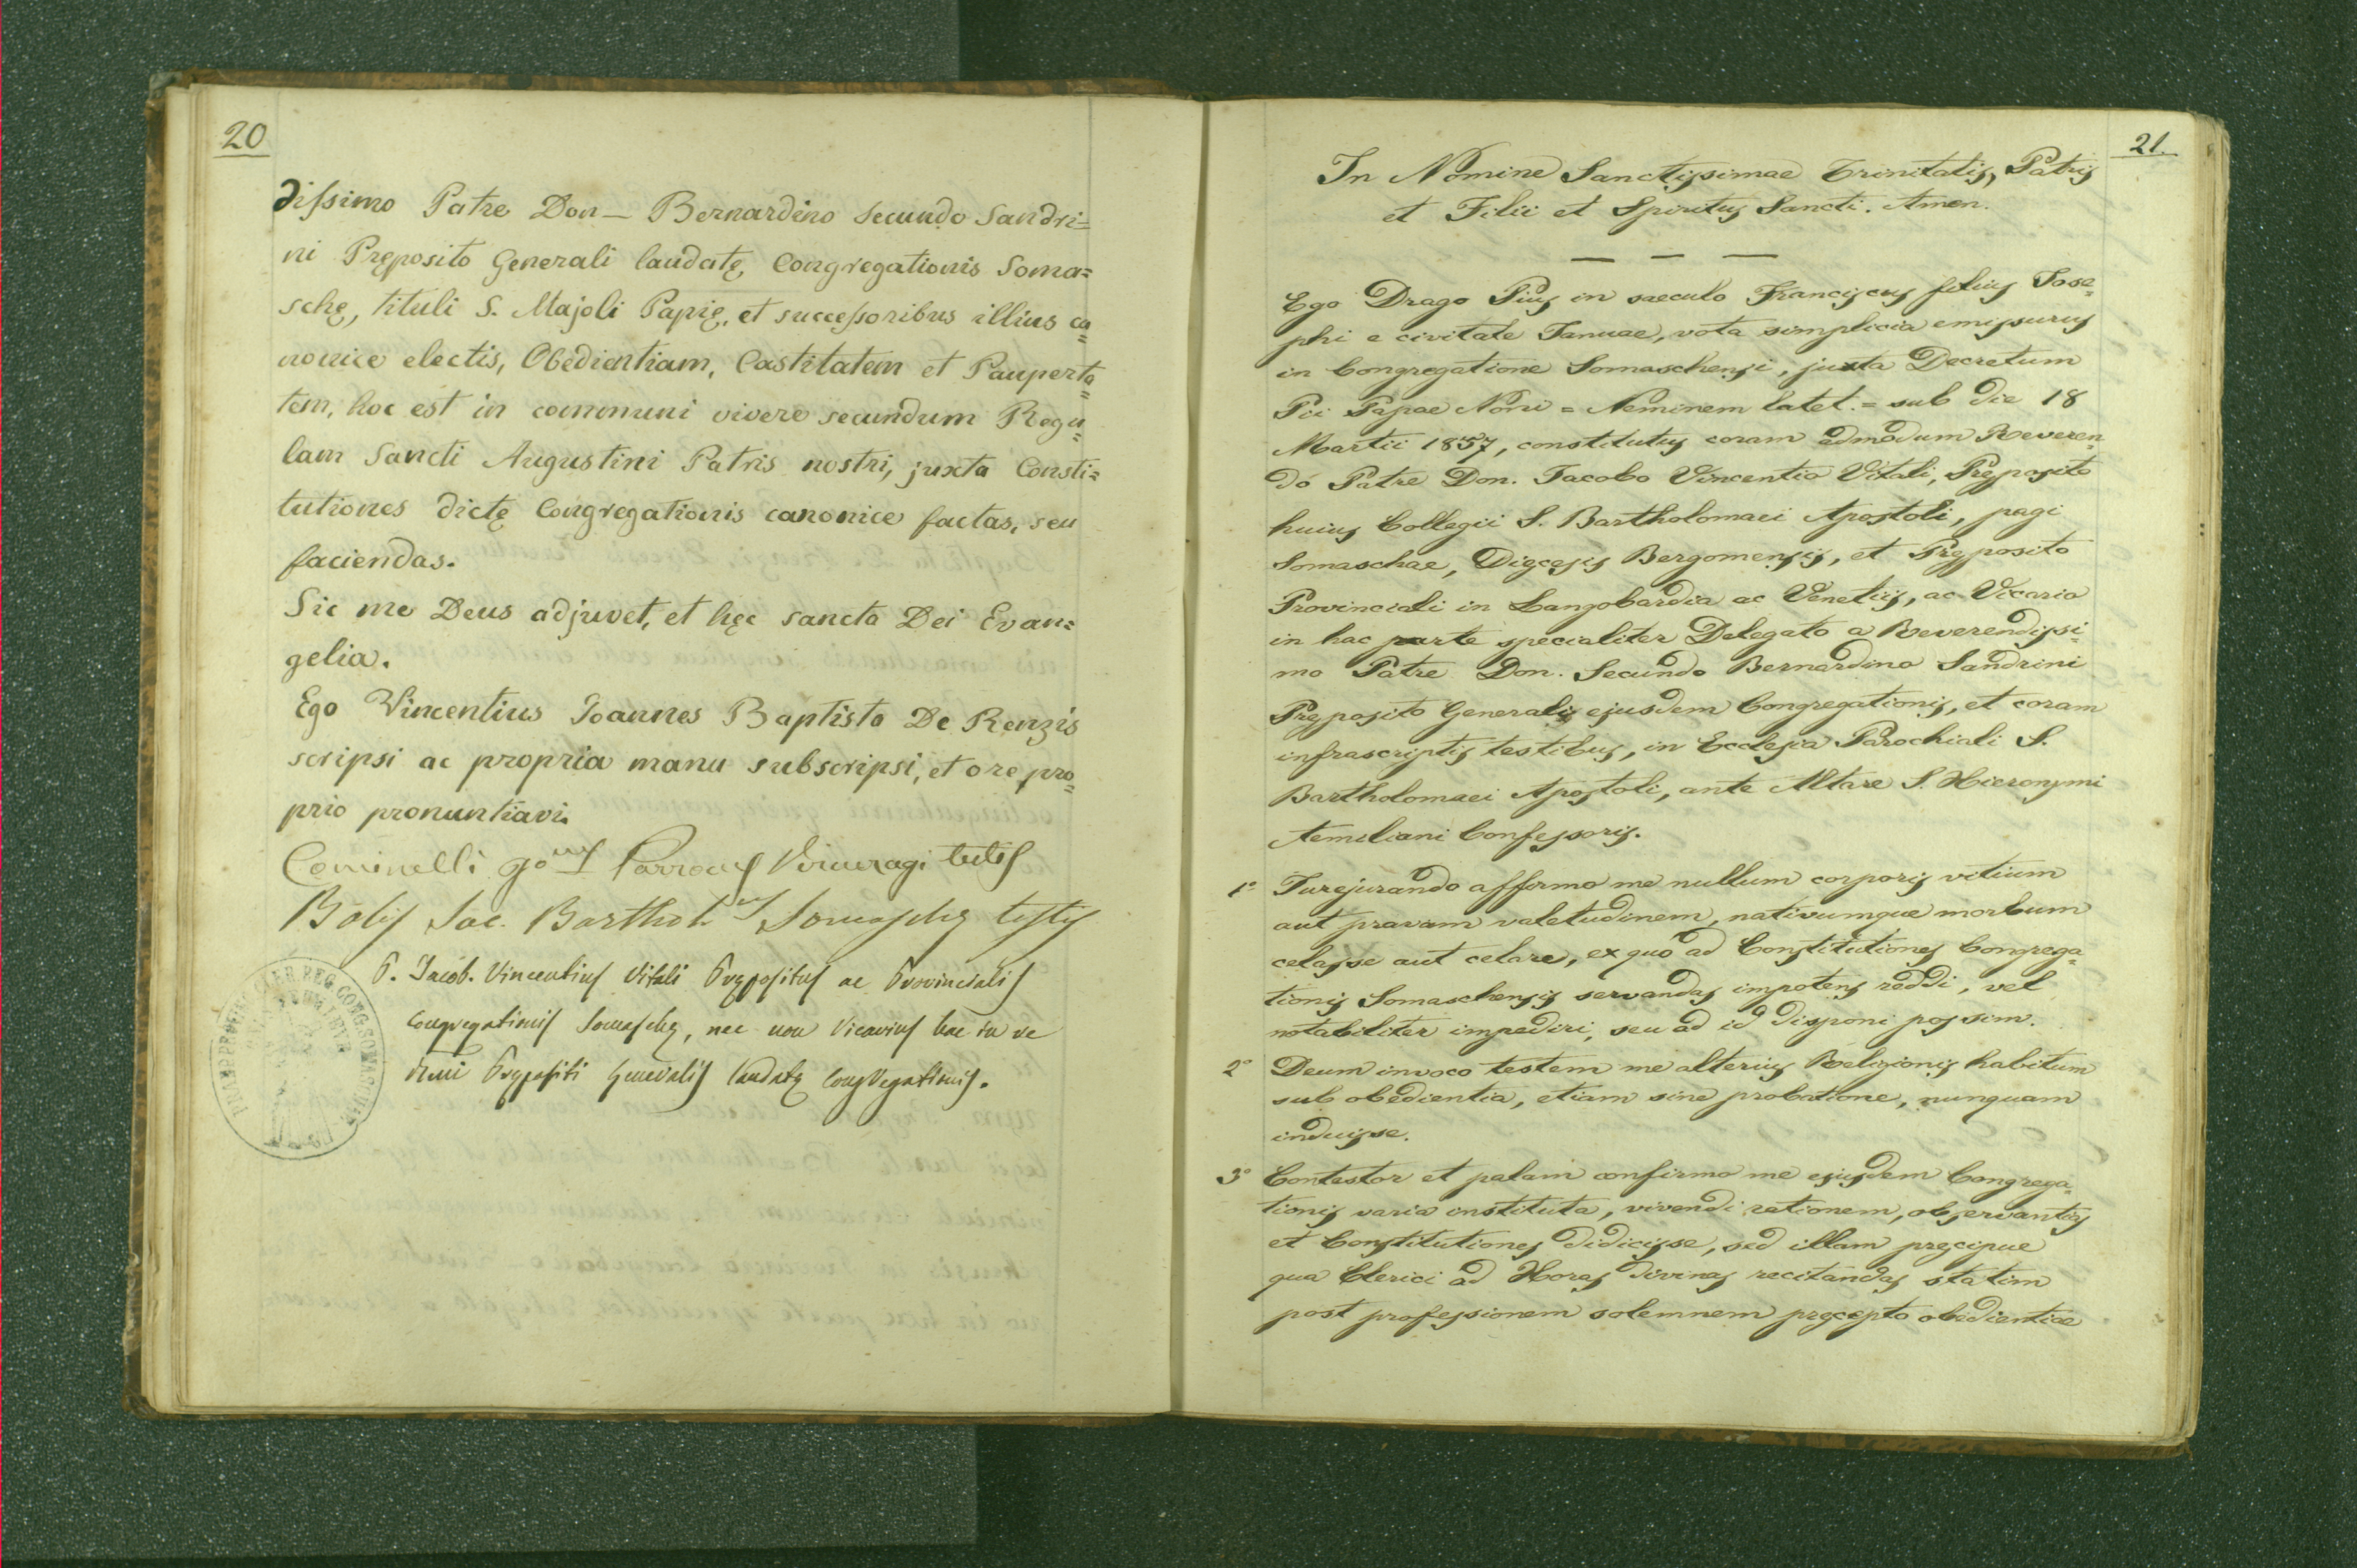 20
dissimo Patre Don – Bernardino Secundo Sandri=
ni Pręposito Generali laudatę Congregationis Soma=
schę, tituli S. Majoli Papię, et successoribus illius ca=
nonice electis, Obedientiam, Castitatem et Pauperta=
tem, hoc est in communi vivere secundum Regu=
lam Sancti Augustini Patris nostri, juxta Consti=
tutiones dictę Congregationis canonice factas, seu
faciendas.
Sic me Deus adjuvet, et hęc sancta Dei Evan=
gelia.
Ego Vincentius Joannes Baptista De Renzis
scripsi ac propria manu subscripsi, et ore pro=
prio pronuntiavi.
Cominelli Parrocus Vercuragi testis
Bolis Sac. Barthol.us Somaschę testis
P. Jacob. Vincentius Vitali Prępositus ac Provincialis
Congregationis Somaschę, nec non Vicarius hac in re
Rmi Prępositi Generalis laudatę Congregationis.
21.
In Nomine Sanctissimae Trinitatis, Patris
et Filii et Spiritus Sancti. Amen.
Ego Drago Pius in saeculo Franciscus filius Jose=
phi e civitate Januae, vota simplicia emissurus
in Congregatione Somaschensi, juxta Decretum
Pii Papae Noni = Neminem latet. = sub die 18
Martii 1857, constitutus coram admodum Reveren=
do Patre Don. Jacobo Vincentio Vitali, Pręposito
huius Collegii S. Bartholomaei Apostoli, pagi
Somaschae, Dięcesis Bergomensis, et Pręposito
Provinciali in Langobardia ac Venetiis, ac Vicario
in hac parte specialiter Delegato a Reverendissi=
mo Patre Don. Secundo Bernardino Sandrini
Pręposito Generalis ejusdem Congregationis, et coram
infrascriptis testibus, in Ecclesia Parochiali S.
Bartholomaei Apostoli, ante Altare S. Hieronymi
Aemiliani Confessoris.
1º Jurejurando affirmo me nullum corporis vitium
aut pravam valetudinem, nativumque morbum
celasse aut celare, ex quo ad Constitutiones Congrega=
tionis Somaschensis servandas impotens reddi, vel
notabiliter impediri, seu ad id disponi possim.
2º Deum invoco testem me alterius Religionis habitum
sub obedientia, etiam sine probatione, nunquam
induisse.
3º Contestor et palam confirmo me ejusdem Congrega=
tionis varia instituta, vivendi rationem, observantias
et Constitutiones didicisse, sed illam pręcipue
qua Clerici ad Horas divinas recitandas statim
post professionem solemnem pręcepto obedientiae